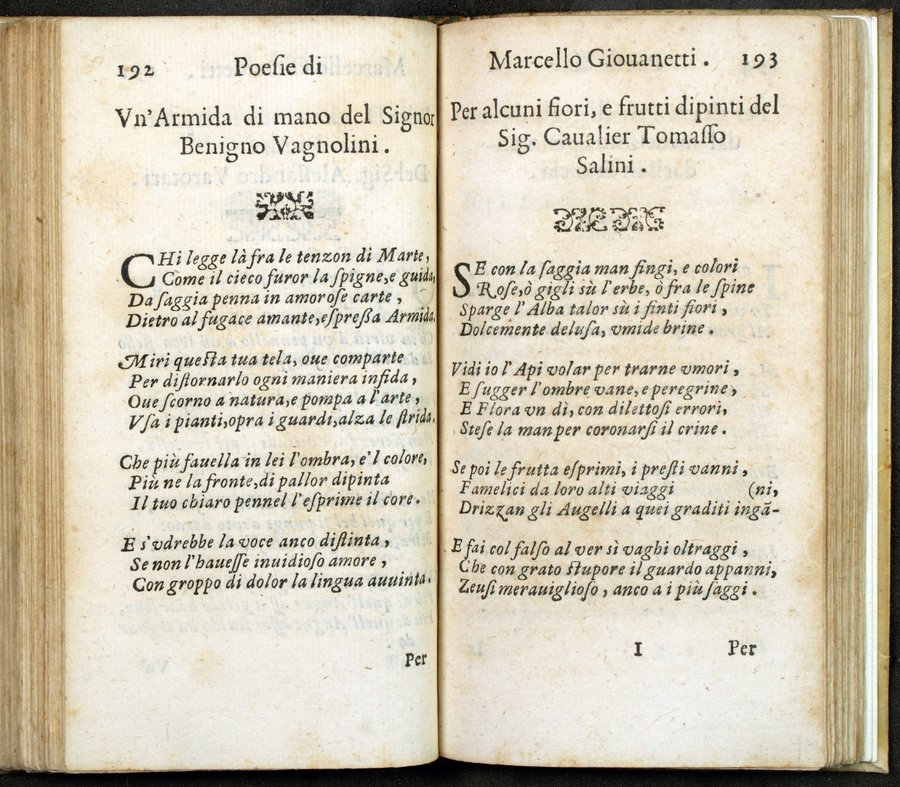 192 Poeſie di
Vn'Armida di mano del Signor
Benigno Vagnolini.
CHi legge là fra le tenzon di Marte,
Come il cieco furor la ſpigne,e guida,
Da ſaggia penna in amoroſe carte,
Dietro al fugace amante,eſpreßa Armida.
Miri queſta tua tela, oue comparte
Per diſtornarlo ogni maniera infida,
Oue ſcorno a natura,e pompa a l'arte,
Vſa i pianti,opra i guardi,alza le ſtrida.
Che più fauella in lei l'ombra, e'l colore,
Più ne la fronte,di pallor dipinta
Il tuo chiaro pennel l'eſprime il core.
E s'vdrebbe la voce anco diſtinta,
Se non l'haueſſe inuidioſo amore,
Con groppo di dolor la lingua auuinta.
Per
Marcello Giouanetti. 193
Per alcuni fiori, e frutti dipinti del
Sig. Caualier Tomaſſo
Salini.
SE con la ſaggia man fingi, e colori
Roſe,ò gigli sù l'erbe, ò fra le ſpine
Sparge l'Alba talor sù i finti fiori,
Dolcemente deluſa, vmide brine.
Vidi io l'Api volar per trarne vmori,
E ſugger l'ombre vane,e peregrine,
E Flora vn dì, con dilettoſi errori,
Steſe la man per coronarſi il crine.
Se poi le frutta eſprimi, i preſti vanni,
Famelici da loro alti viaggi (ni,
Drizzan gli Augelli a quei graditi ingã-
E fai col falſo al ver sì vaghi oltraggi,
Che con grato ſtupore il guardo appanni,
Zeuſi merauiglioſo, anco a i più ſaggi.
I Per